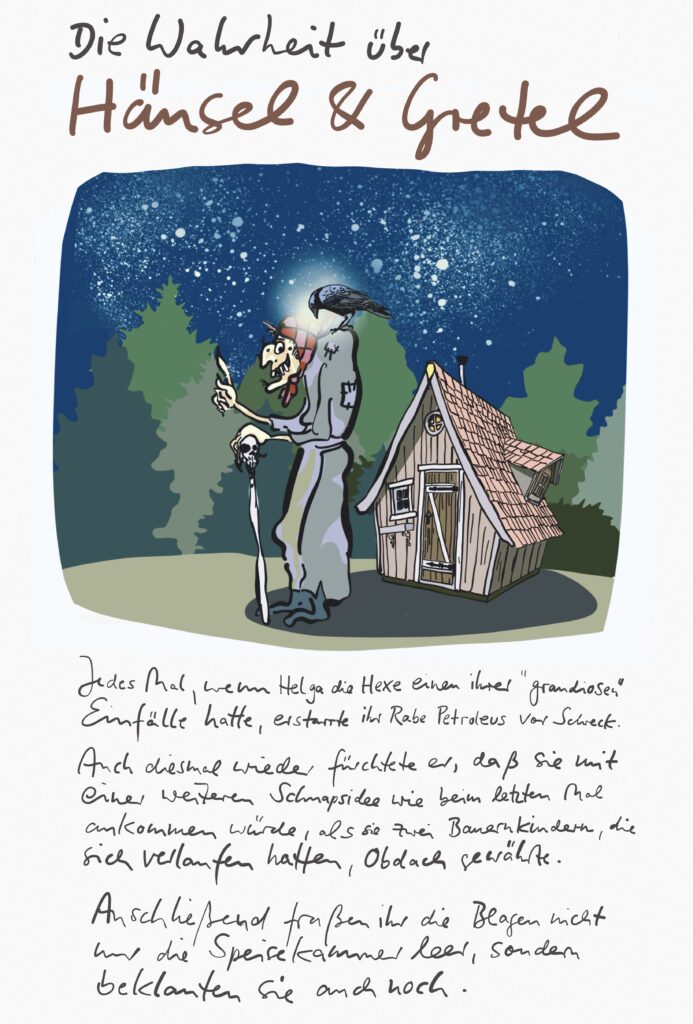 Die Wahrheit über
Hänsel & Gretel
Jedes Mal, wenn Helga die Hexe einen ihrer "grandiosen"
Einfälle hatte, erstarrte ihr Rabe Petroleus vor Schreck.
Auch diesmal wieder fürchtete er, daß sie mit
einer weiteren Schnapsidee wie beim letzten Mal
ankommen würde, als sie zwei Bauernkindern, die
sich verlaufen hatten, Obdach gewährte.
Anschließend fraßen ihr die Blagen nicht
nur die Speisekammer leer, sondern
beklauten sie auch noch.